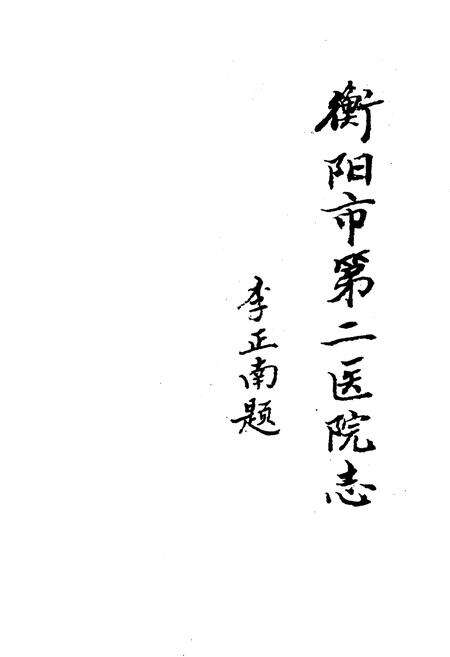 衡阳市第二医院志
李正南题